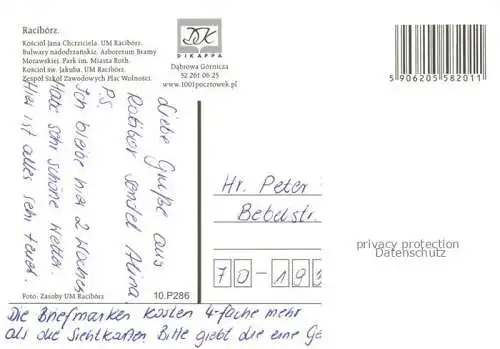 Racibórz.
Kościół Jana Chrzciciela. UM Racibórz.
Bulwary nadodrzańskie. Arboretum Bramy
Morawskiej. Park im. Miasta Roth.
Kościół św. Jakuba. UM Racibórz.
Zespół Szkół Zawodowych Plac Wolności.
DIKAPPA
Dąbrowa Górnicza
32 261 06 25
www.1001pocztowek.pl
5 906205 582011
Liebe Grüße aus
Ratibor sendet Alina.
P.S.
Ich bleibe hier 2 Wochen
Habe sehr schöne Wetter.
Hier ist alles sehr teuer.
Hr. Peter
Bebelstr.
70-193
privacy protection
Datenschutz
Foto: Zasoby UM Racibórz
10.P286
Die Briefmarken kosten 4-fache mehr
als die Sichtkarten. Bitte giebt die eine